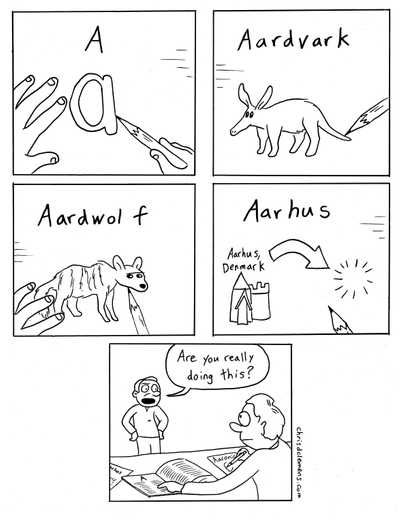 A
a
Aardvark
Aardwolf
Aarhus
Aarhus,
Denmark
Are you really
doing this?
chrisdclemens.com